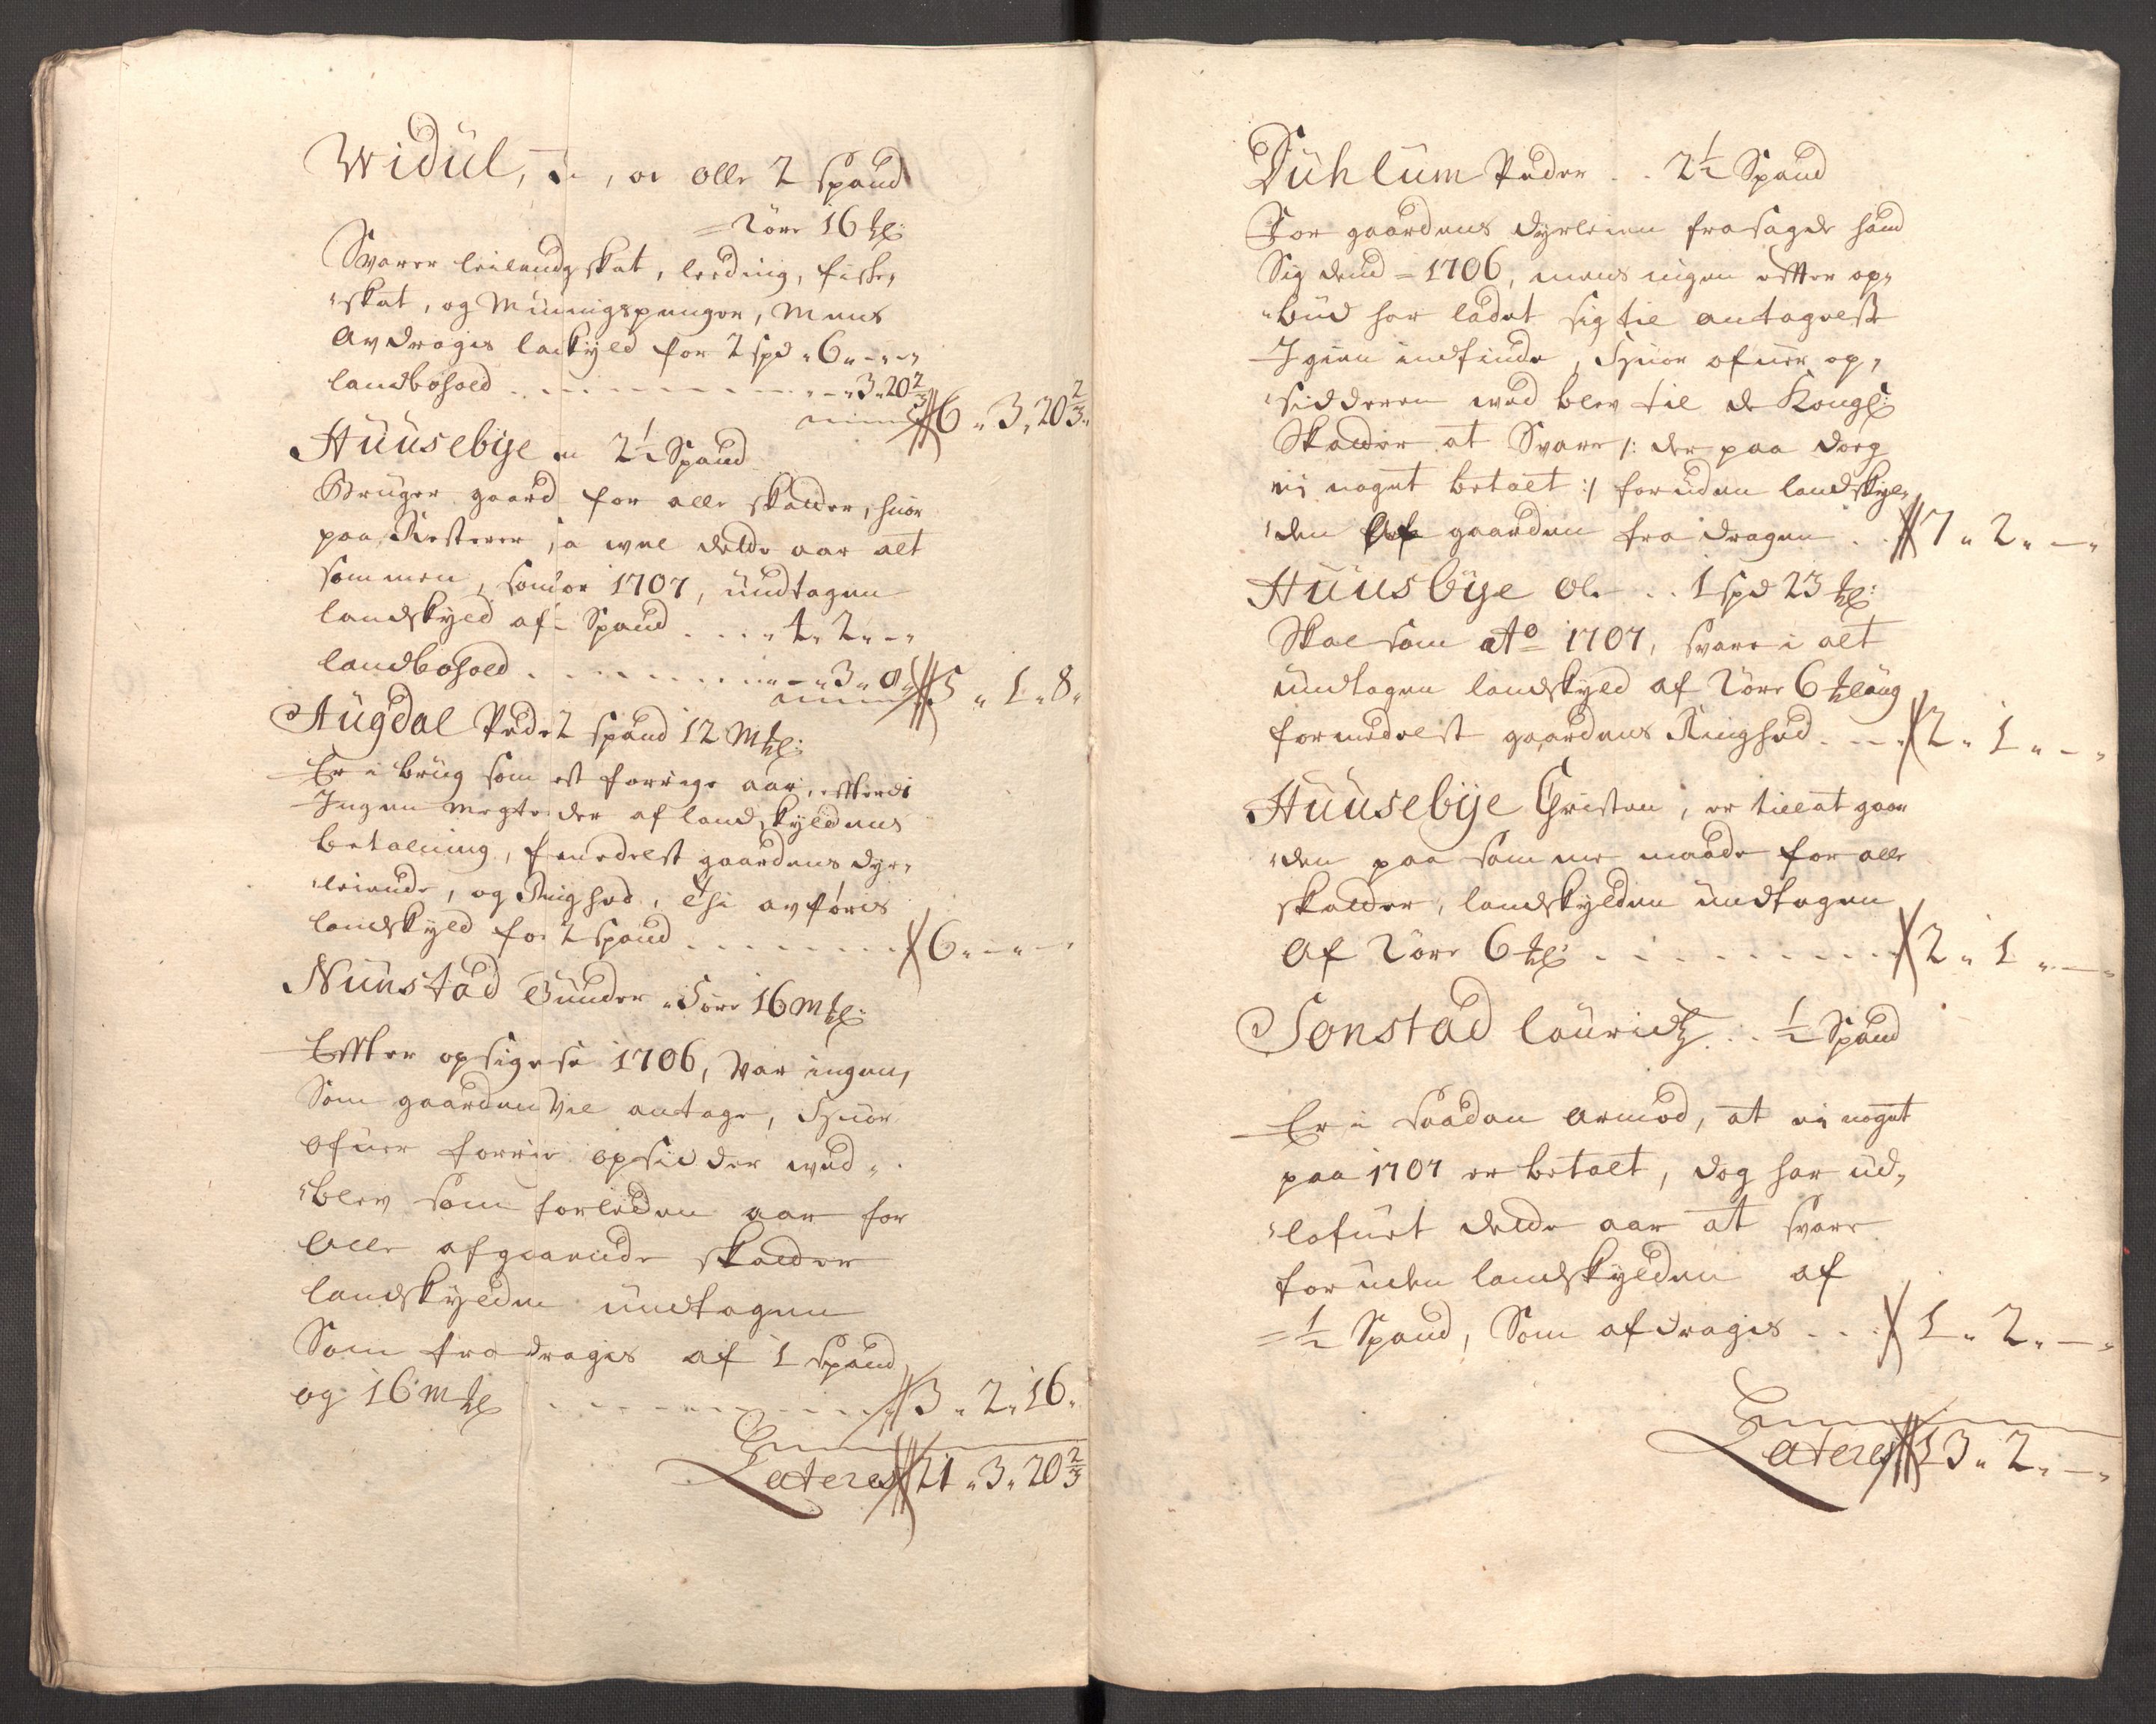 Widul, , Olle 2 Spand
= 2 øre 16 ℔:
Svarer leilendz skat, leeding, fiske,
„skat, og Münningspenger, Mens
Avdrages laskyld for 2 spd „ 6 „ - „ - „
landbohold . . . . . . . . . . „ - „ 3 „ 20 2/3
6 „ 3 „ 20 2/3 „
Huusebye 2 1/2 Spand
Bruger gaard for alle skatter, huor
paa Resterer saa vel dette aar alt
sammen, som for 1707, undtagen
landskyld af Spand . . . . „ 4 „ 2 „ - „
landbohold . . . . . . . . . „ - „ 3 „ 8 „
5 „ 1 „ 8 „
Augdal Peder 2 spand 12 m℔:
Er i brug som est forrige aar, efterdi
Ingen megter der af landskyldens
betalning, formedelst gaardens dyr,
„leiende, og Ringhed, thi afføres
landskyld for 2 spand . . . . . . . 6 „ - „ - „
Nunstad Gunder „ 5 øre 16 m℔:
Effter opsigelse 1706, var ingen,
Som gaarden vil antage, Huor
ofuer forrie opsidder ved „
„blev som forleden aar for
Alle afgaaende skatter
landskylden undtagen
Som fradrages af 1 Spand
og 16 m℔ . . . . . . . . . 3 „ 2 „ 16 „
Lateres 21 „ 3 „ 20 2/3
Duhlum Peder . . 2 1/2 Spand
For gaardens dyrleien frasagde hand
Sig dend = 1706, mens ingen efter op„
„bud har ladet sig til antagelse
Igien indfinde, Huor ofuer op,
„sidderen ved blev til de Kongl:
Skatter at Svare /: der paa dog
ej noget betalt :/ foruden landskyl„
„den af gaarden fra dragen . . 7 „ 2 „ - „
Huusbye Ole . . 1 spd 23 ℔:
Skal som Ao 1707, svare i alt
undtagen landskyld af 2 øre 6 ℔laug
formedelst gaardens Ringhed . . . 2 „ 1 „ - „
Huusebye Christen, er tillat gaar
„den paa samme maade for alle
skatter, landskylden undtagen
Af 2 øre 6 ℔: . . . . . . . . . 2 „ 1 „ - „
Sonstad Lauridtz . . 1/2 Spand
Er i saadan armod, at ei noget
paa 1707 er betalt, dog har ud„
„lofuet dette aar at svare
foruden landskylden af
= 1/2 Spand, Som afdrages . . . 1 „ 2 „ - „
Lateres 13 „ 2 „ - „